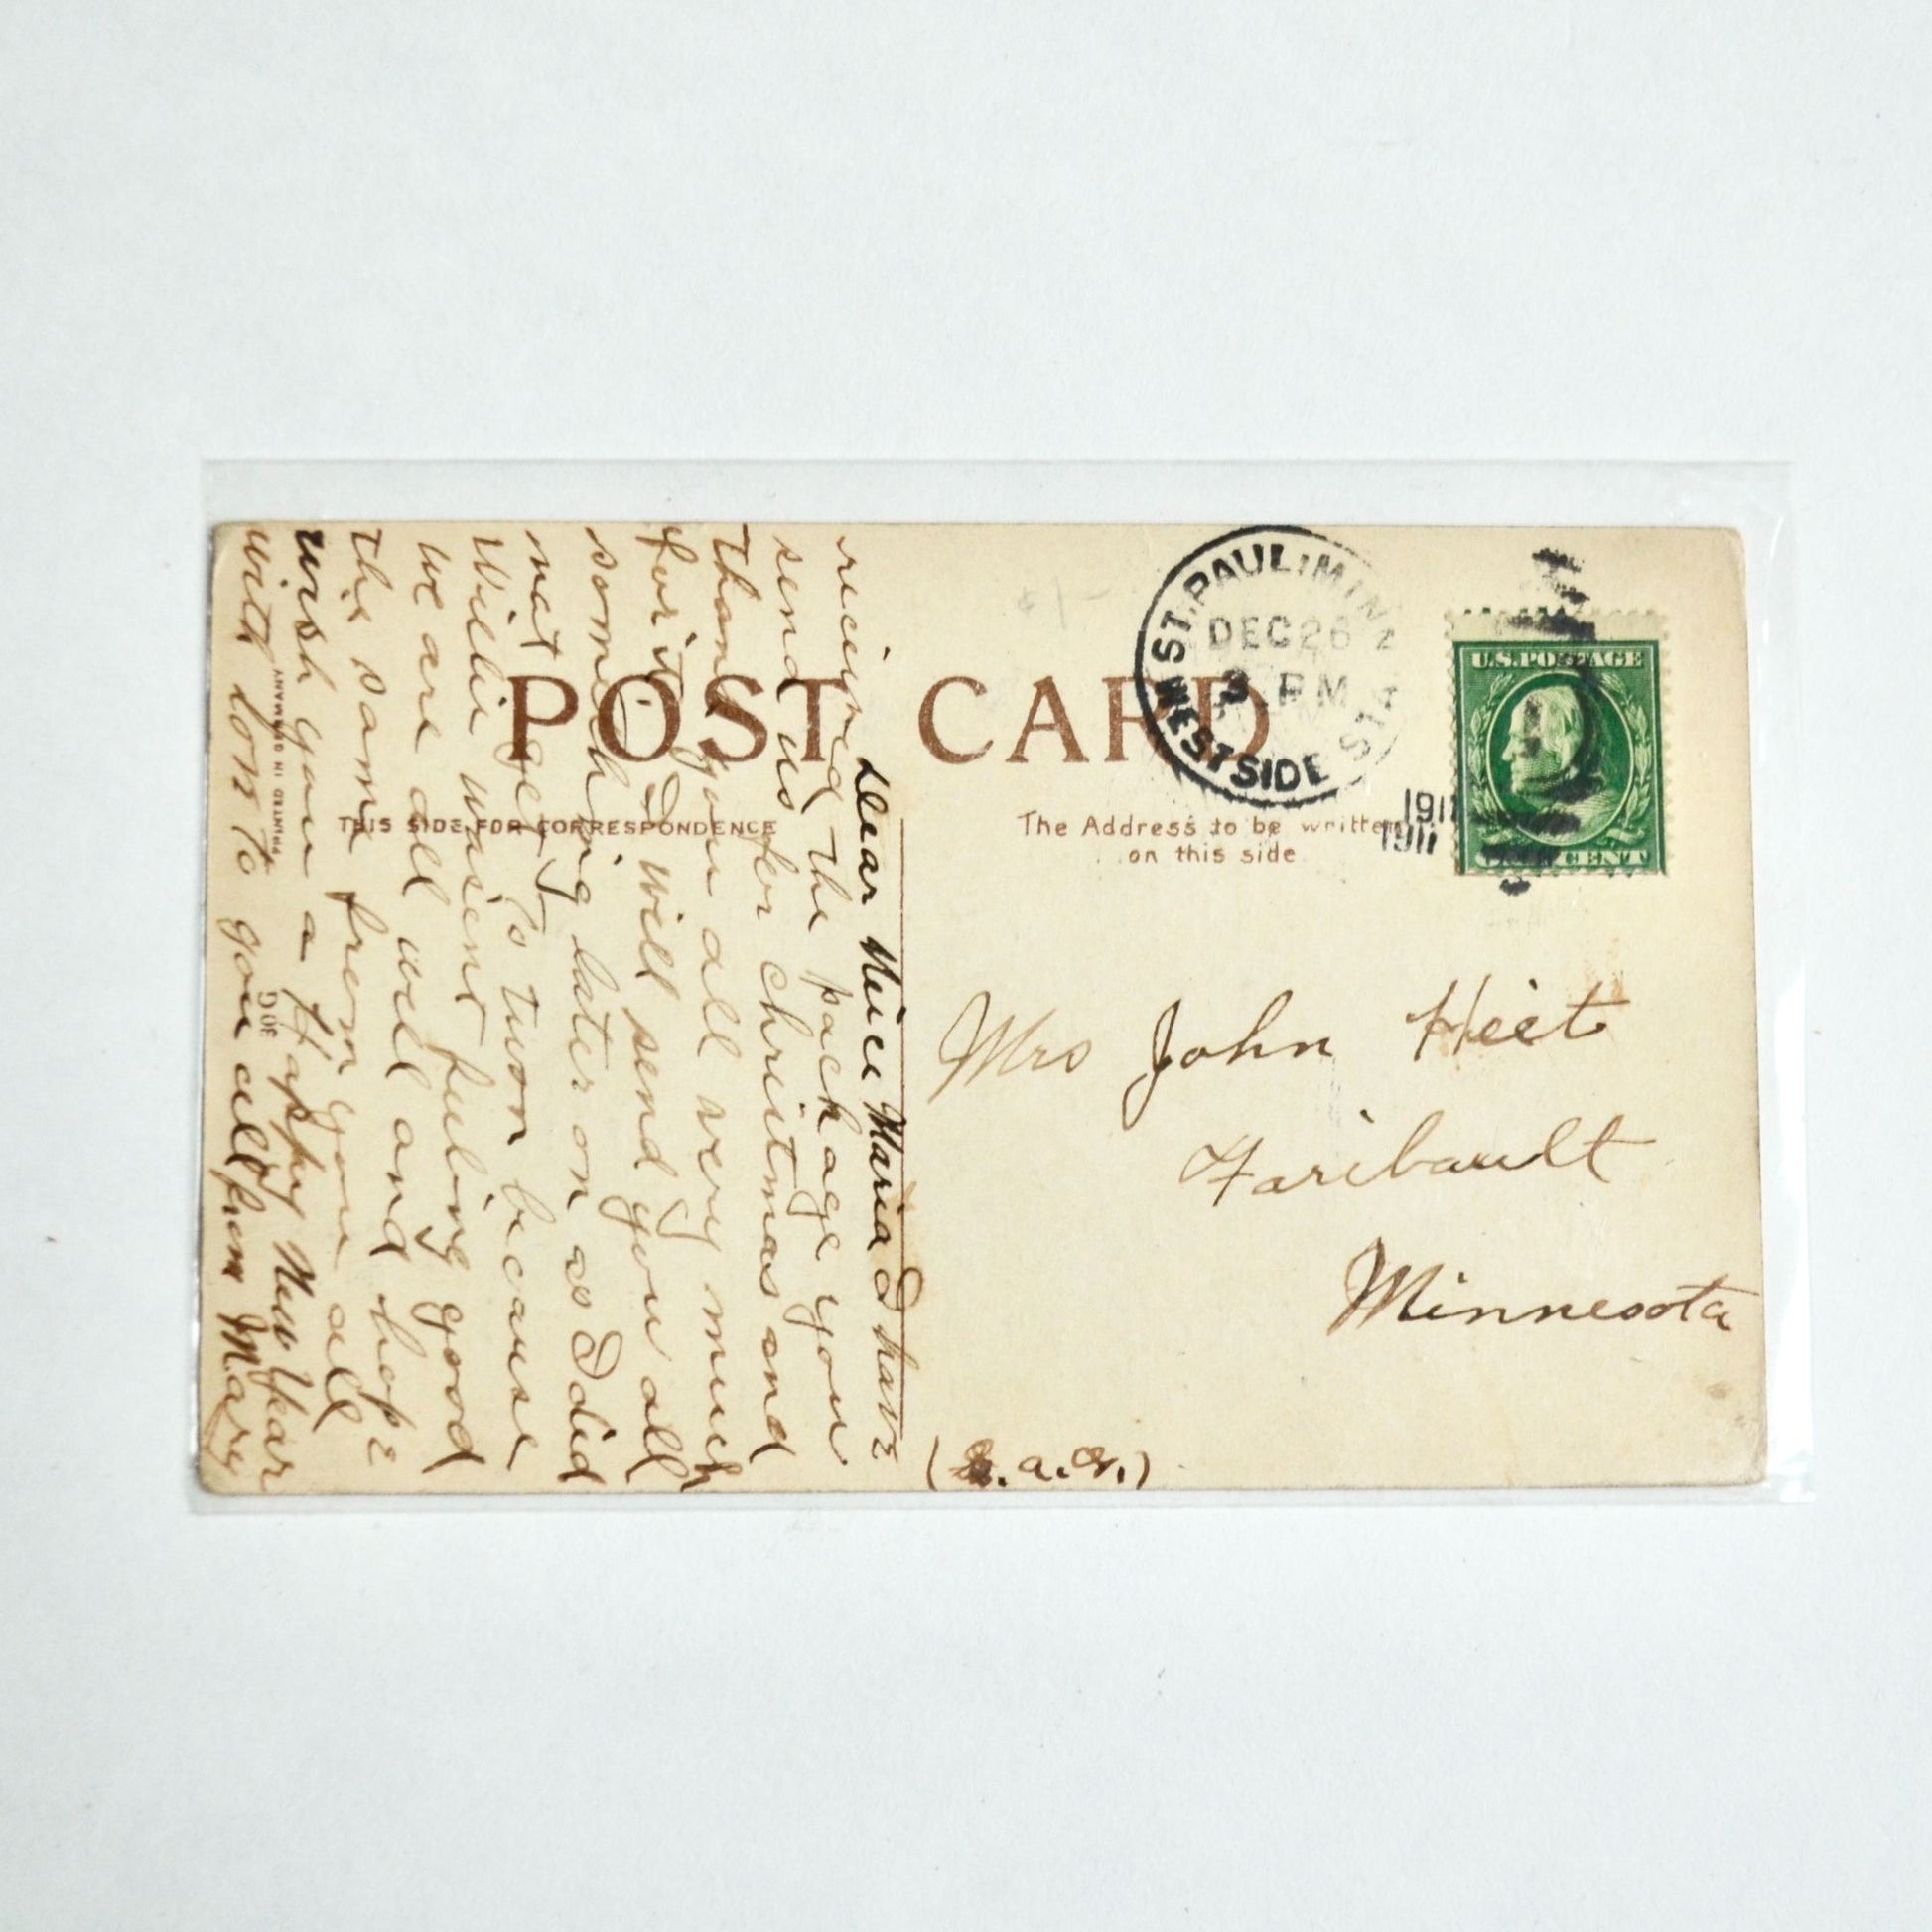 POST CARD
THIS SIDE FOR CORRESPONDENCE
The Address to be written
on this side
ST. PAUL, MINN.
WEST SIDE STA
DEC 26
3 PM
1911
1911
U.S. POSTAGE
CENT
Mrs John Heit
Faribault
Minnesota
Dear Niece Maria I have
recieved the package you
send us for christmas and
thank you all very much
for it I will send you all
something later on as I did
not get to town because
Willie wasent feeling good
we are all well and hope
the same from you all
wish you a Happy New Year
with love to you all from Mary
PRINTED IN GERMANY